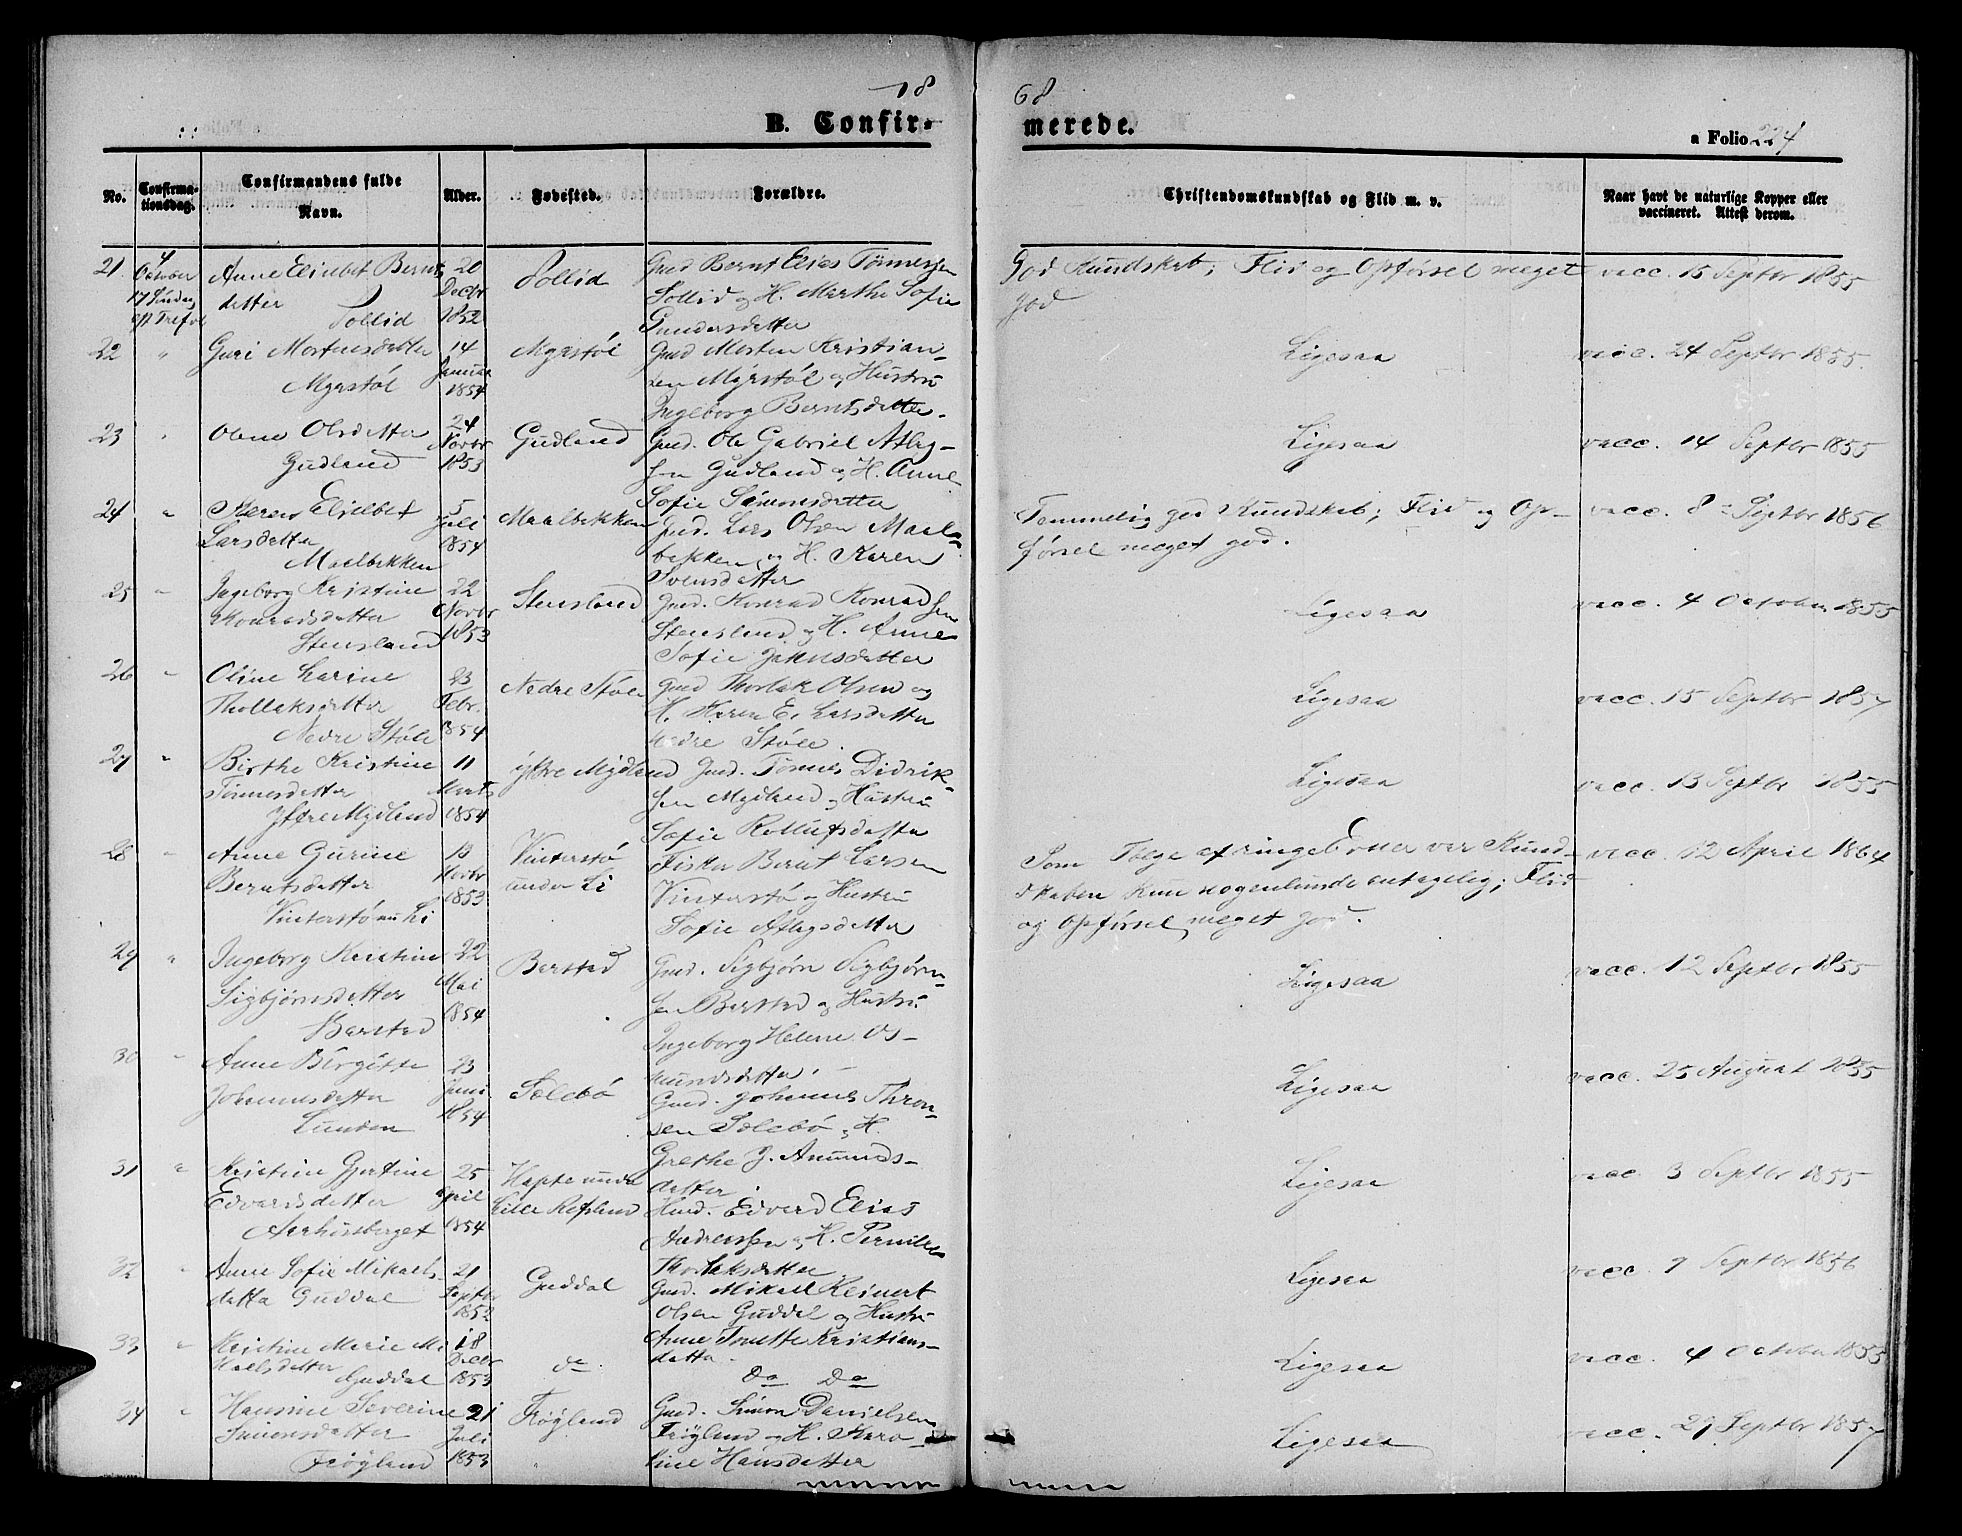 18 68
B. Confirmerede.
a Folio 224
No. Confirmationsdag. Confirmandens fulde Navn. Alder. Fødested. Forældre. Christendomskundskab og Flid m. v. Naar havt de naturlige Kopper eller vaccineret. Attest derom.
21 4 October 17 Sindag Anne Elisabet Berntsdetter Sollid 20 Decbr 1852 Sollid Gmd Bernt Elias Tönnessen Sollid og H. Marthe Sofie Gundersdetter God Kundskab; Flid og Opförsel meget god vacc. 15 Septbr 1855
22 " Guri Mortensdetter Myrstöl 14 Januar 1854 Myrstöl Gmd Morten Kristiansen Myrstöl og Hustru Ingeborg Berntsdetter. Ligesaa vacc. 24 Septbr 1855.
23 " Olene Olsdetter Gudland 24 Novbr 1853 Gudland Gmd. Ole Gabriel Atlagsen Gudland og H. Anne Sofie Simonsdetter Ligesaa vacc. 14 Septbr 1855
24 " Maren Elisebet Larsdetter Maalbekken 5 Juli 1854 Maalbekken Gmd. Lars Olsen Maalbekken og H. Karen Svensdetter Temmelig god Kundskab; Flid og Opförsel meget god. vacc. 8 Septbr 1856
25 " Ingeborg Kristine Konradsdetter Stensland 22 Novbr 1853 Stensland Gmd. Konrad Konradsen Stensland og H. Anne Sofie Jakobsdetter Ligesaa vacc. 4 October 1855
26 " Oline Larine Thollaksdetter Nedre Stöle 23 Febr. 1854 Nedre Stöle Gmd Thorlak Olsen og H. Karen E. Larsdetter Nedre Stöle. Ligesaa vacc. 15 Septbr 1857
27 " Birthe Kristine Tönnesdetter Yttre Mydland 11 Marts 1854 Yttre Mydland Gmd. Tönnes Didriksen Mydland og Hustru Sofie Rollufsdetter Ligesaa vacc. 13 Septbr 1855
28 " Anne Gurine Berntsdetter Vinterstö un Li 13 Novbr 1853 Vinterstö under Li Fisker Bernt Larsen Vinterstö og Hustru Sofie Atlagsdetter Som Fölge af ringe Evner var Kundskaben kun nogenlunde antagelig; Flid og Opförsel meget god. vacc. 12 April 1864
29 " Ingeborg Kristine Sigbjörnsdetter Barstad 22 Mai 1854 Barstad Gmd. Sigbjörn Sigbjörnsen Barstad og Hustru Ingeborg Helene Osmundsdetter. Ligesaa vacc. 12 Septbr 1855
30 " Anne Birgitte Johannesdetter Lunden 23 Juni 1854 Sælebö Gmd. Johannes Thronsen Sælebö og H. Grethe J. Amundsdetter Ligesaa vacc. 25 August 1855
31 " Kristine Gjertine Edvardsdetter Aarhusberget 25 April 1854 Lille Refsland Hmd. Edvard Elias Andreassen og H. Pernille Thorlaksdetter Ligesaa vacc. 3 Septbr 1855
32 " Anne Sofie Mikaelsdetter Guddal 21 Septbr 1852 Guddal Gmd. Mikael Reinert Olsen Guddal og Hustru Anne Tonette Kristiansdetter. Ligesaa vacc. 9 Septbr 1856
33 " Kristine Marie Mikaelsdetter Guddal 18 Decbr 1853 do. Do Do Ligesaa vacc. 4 October 1855
34 " Hansine Severine Simonsdetter Fröyland 21 Juli 1853 Fröyland Gmd. Simon Danielsen Fröyland og H. Karoline Hansdetter Ligesaa vacc. 29 Septbr 1857